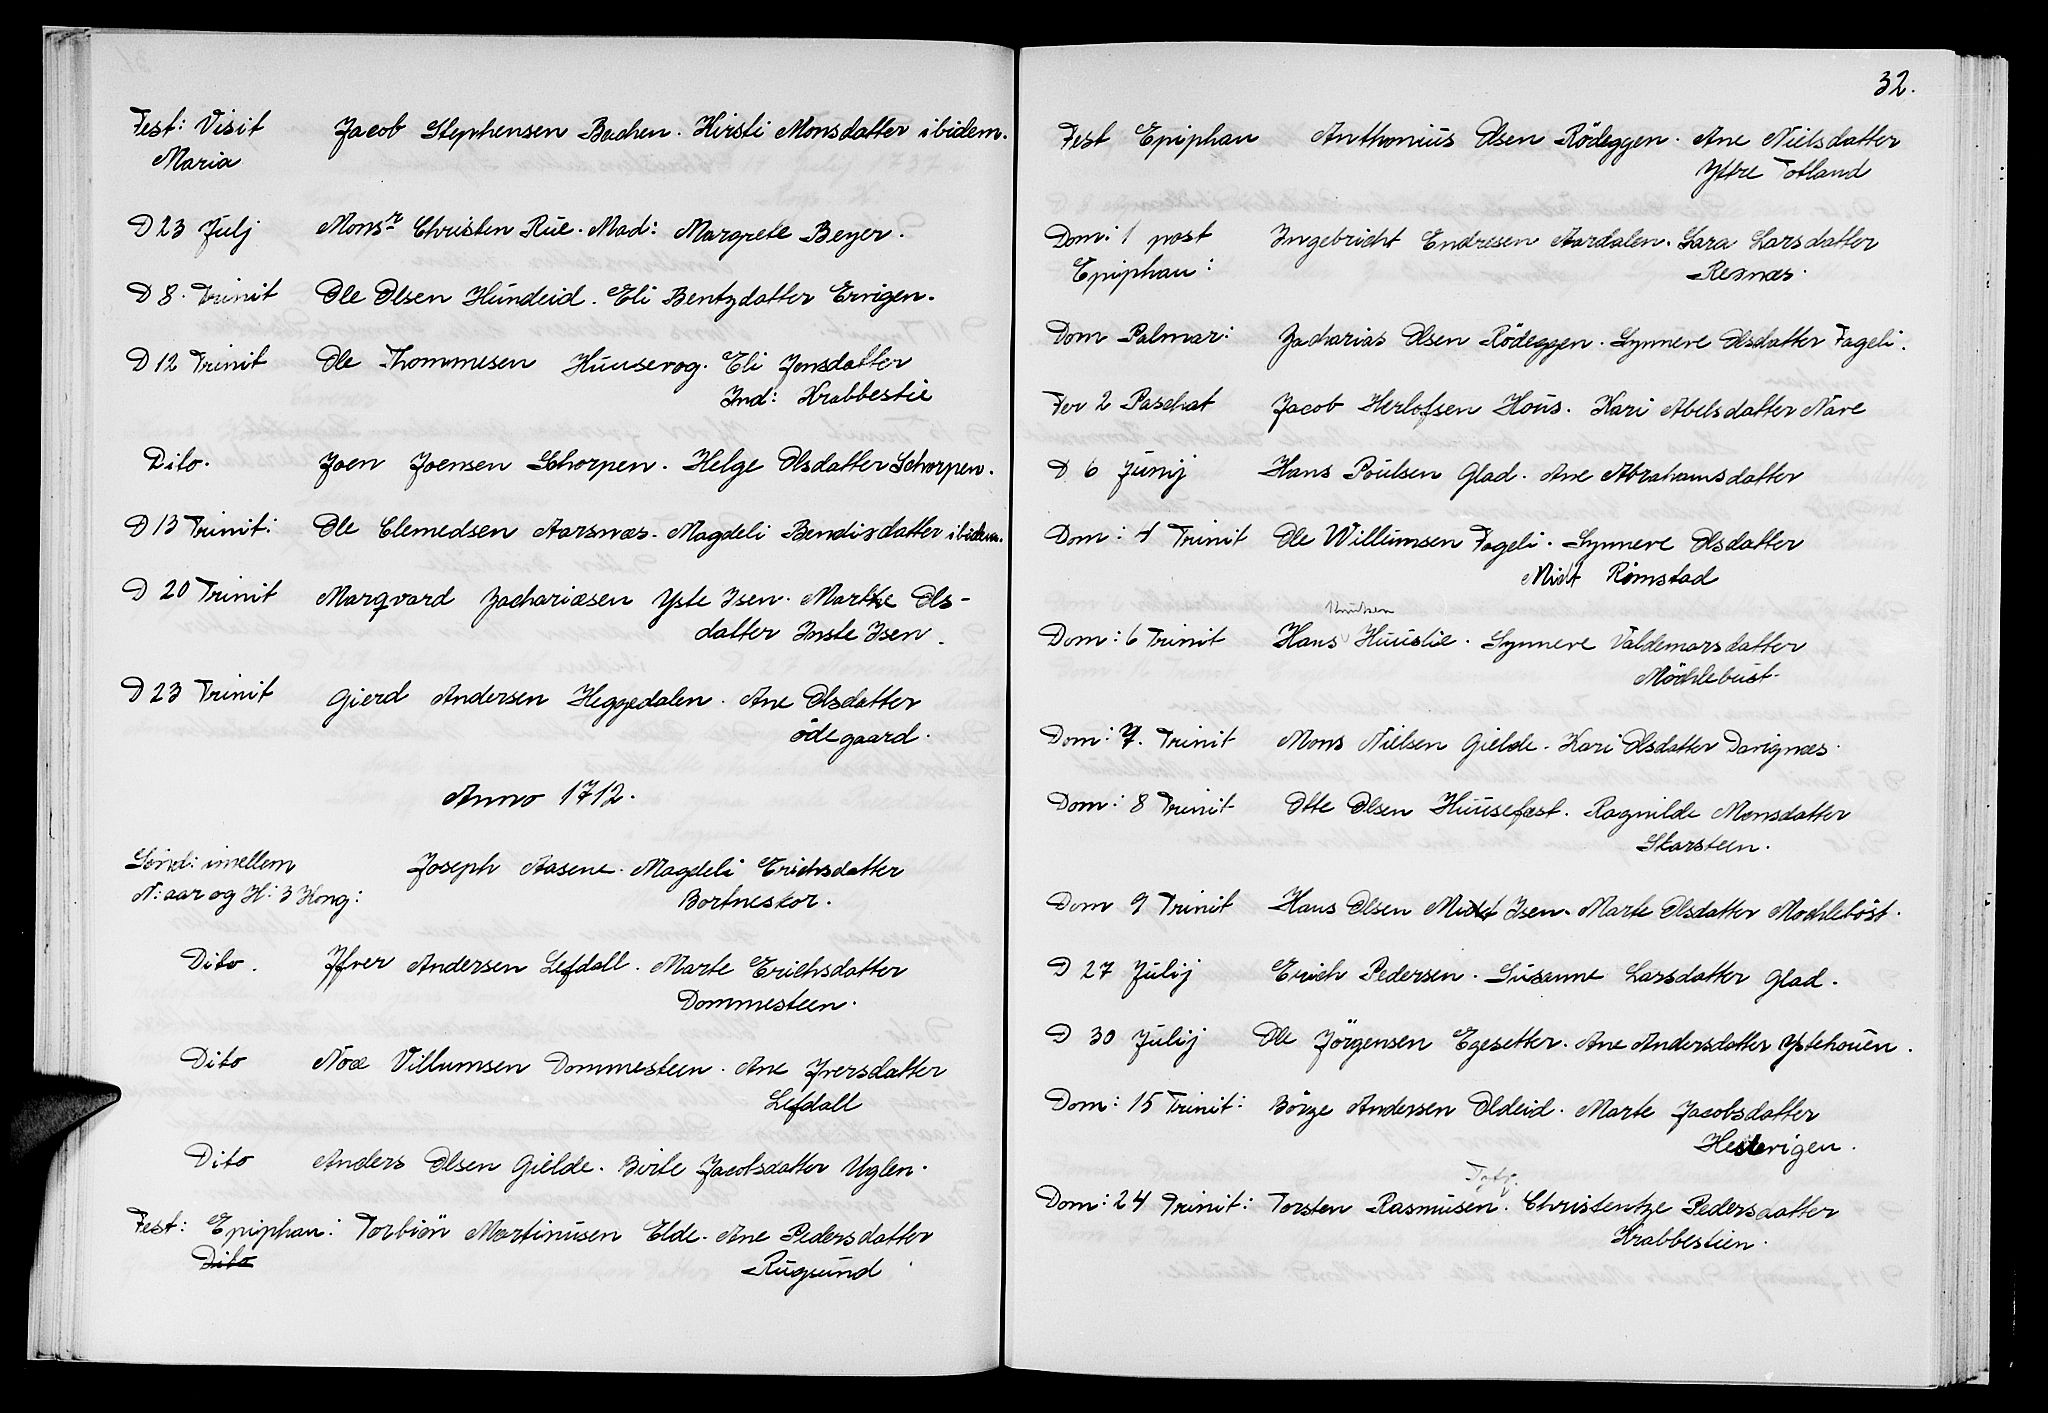 Fest: Visit Jacob Stephensen Bachen. Kirsti Monsdatter ibidem.
Maria
D 23 Julj Monsr Christen Rüe. Mad: Margrete Beyer.
D 8. Trinit Ole Olsen Hündeid. Eli Bentzdatter Errigen.
D 12 Trinit Ole Thommesen Huusevog. Eli Jonsdatter
Ind: Krabbestie
Dito. Joen Joensen Schorpen. Helge Olsdatter Schorpen.
D 13 Trinit: Ole Clemedsen Aarsnæs. Magdeli Bendixdatter ibidem.
D 20 Trinit Marqvard Zachariæsen Yste Isen. Marthe Ols-
datter Inste Isen.
D 23 Trinit Gierd Andersen Heggedalen. Ane Olsdatter
ödegaard.
Anno 1712.
Sönd: imellem Joseph Aasene. Magdeli Erichsdatter
N: aar og H: 3 Kong: Bortneskor.
Dito. Iffver Andersen Lefdall. Marte Erichsdatter
Dommesteen.
Dito Noe Villumsen Dommesteen. Ane Iversdatter
Lefdall
Dito Anders Olsen Gielde. Birte Jacobsdatter Uglen.
Fest: Epiphan: Torbiön Martinüsen Elde. Ane Pedersdatter
Dito Rügsünd
32.
Fest Epiphan Anthonius Olsen Rödeggen. Ane Nielsdatter
Yttre Totland
Dom: 1 post Ingebricht Endresen Aardalen. Lara Larsdatter
Epiphan: Rexnæs.
Dom Palmar: Zacharias Olsen Rödeggen. Synneve Olsdatter Fageli.
Fer 2 Paschat Jacob Herlofsen Hoüs. Kari Abelsdatter Nave
D 6 Junij Hans Poülsen Glad. Ane Abrahamsdatter
Dom: 4 Trinit Ole Willümsen Fageli. Synneve Olsdatter
Midt Rimstad
Knudsen
Dom: 6 Trinit Hans Huuslie. Synneve Valdemarsdatter
Möchlebust.
Dom: 7. Trinit Mons Nielsen Gielde. Kari Olsdatter Davignæs.
Dom: 8 Trinit Otte Olsen Hüüsefæst. Ragnilde Monsdatter
Skarsteen.
Dom 9 Trinit Hans Olsen Midt Isen. Marte Olsdatter Mochleböst.
D 27 Julij Erich Pedersen. Süsanne Larsdatter Glad.
D 30 Julij Ole Jörgensen Egesetter. Ane Andersdatter Ystehoüen.
Dom: 15 Trinit: Börge Andersen Oldeid. Marte Jacobsdatter
Hestevigen.
Dom: 24 Trinit: Torsten Rasmüsen. Christentze Pedersdatter
Krabbestien.